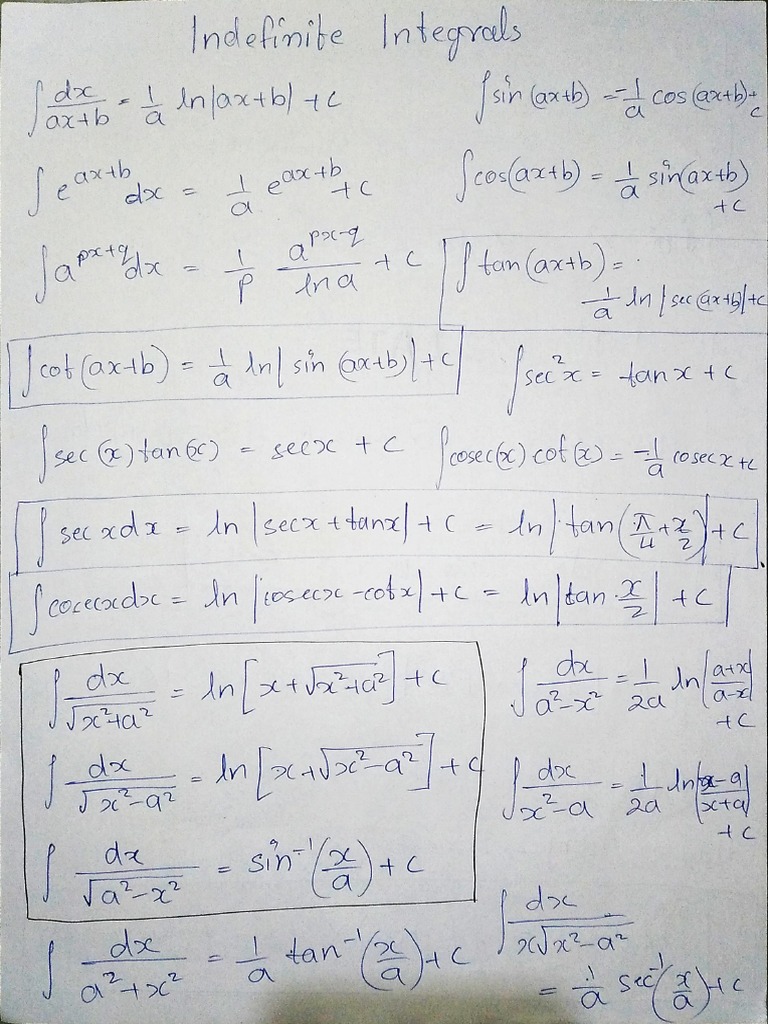 Indefinite Integrals
∫ dx/(ax+b) = 1/a ln|ax+b| + c
∫ sin (ax+b) = -1/a cos(ax+b) + c
∫ e^(ax+b) dx = 1/a e^(ax+b) + c
∫ cos(ax+b) = 1/a sin(ax+b) + c
∫ a^(px+q) dx = 1/p a^(px-q)/ln a + c
∫ tan(ax+b) = 1/a ln|sec(ax+b)| + c
∫ cot(ax+b) = 1/a ln|sin (ax+b)| + c
∫ sec²x = tanx + c
∫ sec(x) tan(x) = secx + c
∫ cosec(x) cot(x) = -1/a cosecx + c
∫ sec x dx = ln|secx + tanx| + c = ln|tan(π/4 + x/2)| + c
∫ cosecx dx = ln|cosecx - cotx| + c = ln|tan x/2| + c
∫ dx/√(x²+a²) = ln[x + √(x²+a²)] + c
∫ dx/(a²-x²) = 1/2a ln|(a+x)/(a-x)| + c
∫ dx/√(x²-a²) = ln[x + √(x²-a²)] + c
∫ dx/(x²-a) = 1/2a ln|(x-a)/(x+a)| + c
∫ dx/√(a²-x²) = sin⁻¹(x/a) + c
∫ dx/(x√(x²-a²))
= 1/a sec⁻¹(x/a) + c
∫ dx/(a²+x²) = 1/a tan⁻¹(x/a) + c